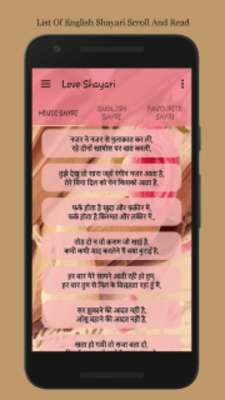 List Of English Shayari Scroll And Read
Love Shayari
HINDI SAYRI
ENGLISH
SAYRI
FAVOURITE
SAYRI
नजर ने नजर से मुलाक़ात कर ली,
रहे दोनों खामोश पर बात करली,
तुझे देखू तो सारा जहाँ रंगीन नजर आता है,
तेरे बिना दिल को चेन किसको आता है,
फर्क होता है खुदा और फ़क़ीर में,
फर्क होता है किस्मत और लकीर में,,
तोड़ दो न वो कसम जो खाई है,
कभी कभी याद करलेने में क्या बुराई है,
हर बार मेरे सामने आती रही हो तुम,
हर बार तुम से मिल के बिछड़ता रहा हूँ मैं,
सर झुकाने की आदत नहीं है,
आँसू बहाने की आदत नहीं है,
खता हो गयी तो सजा बता दो,